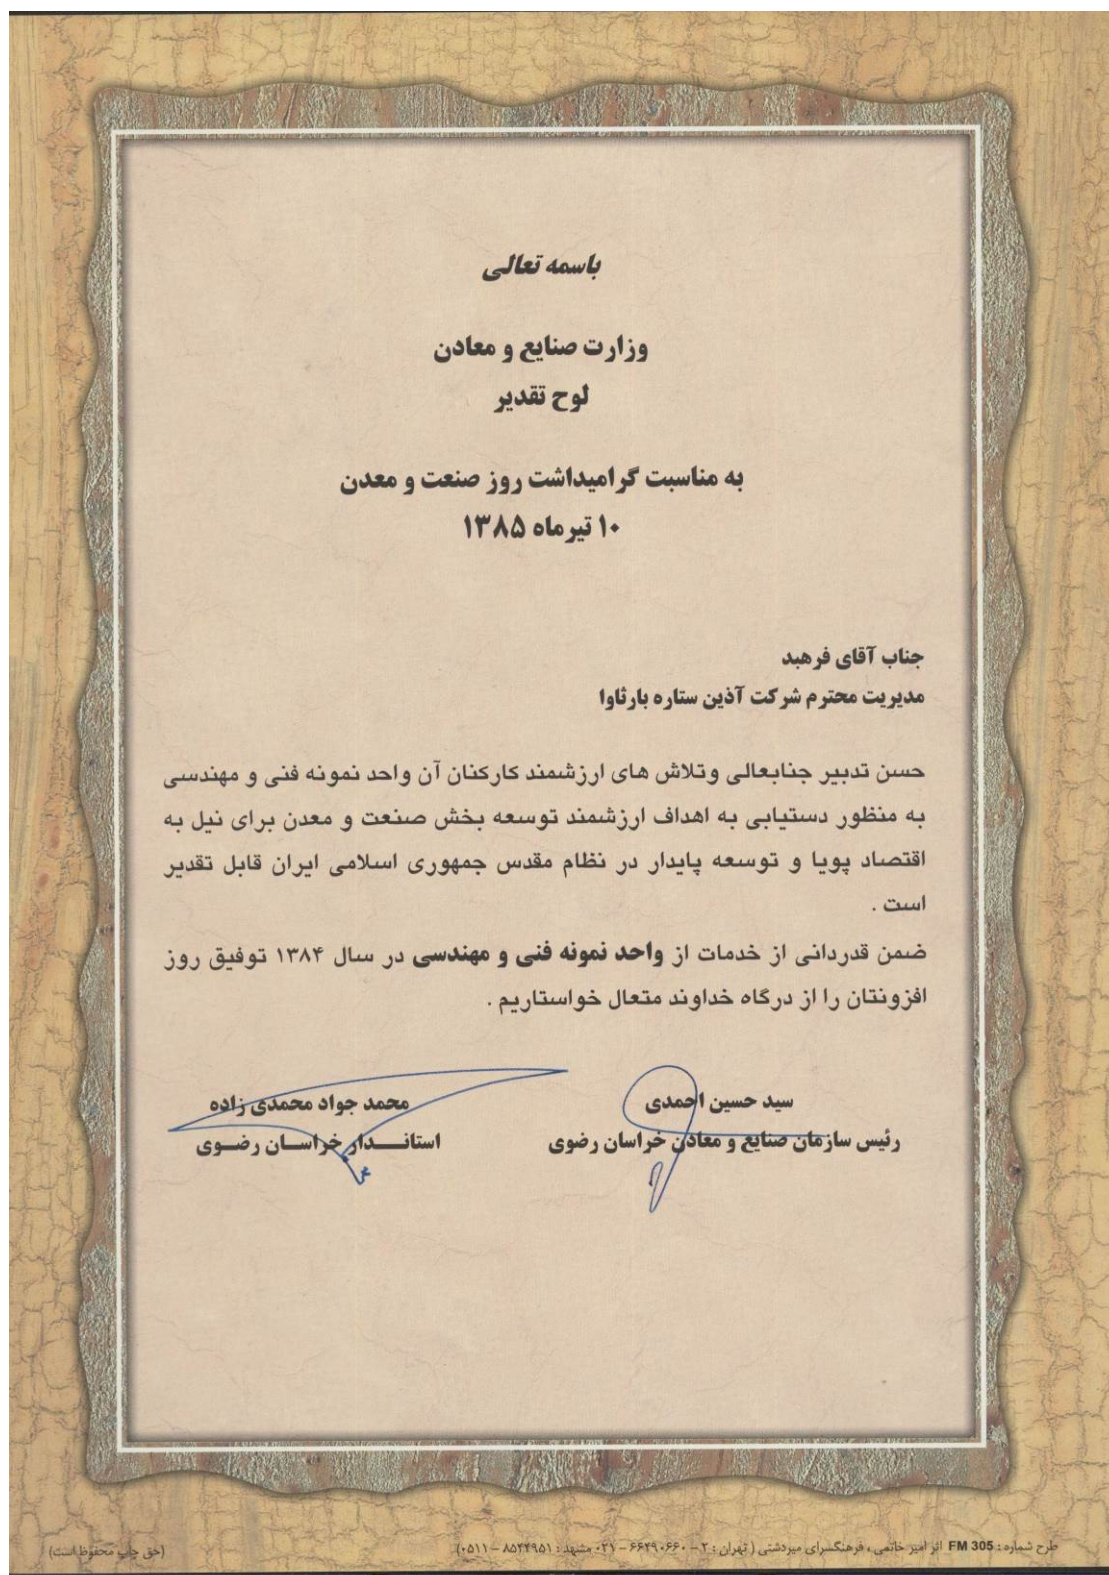 باسمه تعالی
وزارت صنایع و معادن
لوح تقدیر
به مناسبت گرامیداشت روز صنعت و معدن
۱۰ تیرماه ۱۳۸۵
جناب آقای فرهبد
مدیریت محترم شرکت آذین ستاره بارثاوا
حسن تدبیر جنابعالی وتلاش های ارزشمند کارکنان آن واحد نمونه فنی و مهندسی
به منظور دستیابی به اهداف ارزشمند توسعه بخش صنعت و معدن برای نیل به
اقتصاد پویا و توسعه پایدار در نظام مقدس جمهوری اسلامی ایران قابل تقدیر
است .
ضمن قدردانی از خدمات از واحد نمونه فنی و مهندسی در سال ۱۳۸۴ توفیق روز
افزونتان را از درگاه خداوند متعال خواستاریم .
سید حسین احمدی
رئیس سازمان صنایع و معادن خراسان رضوی
محمد جواد محمدی زاده
استانــدار خراســان رضــوی
طرح شماره : FM 305 اثر امیر خاتمی ، فرهنگسرای میردشتی ( تهران : ۲ – ۶۶۴۹۰۶۶۰ – ۰۲۱ مشهد : ۸۵۲۴۹۵۱ – ۰۵۱۱)
(حق چاپ محفوظ است)